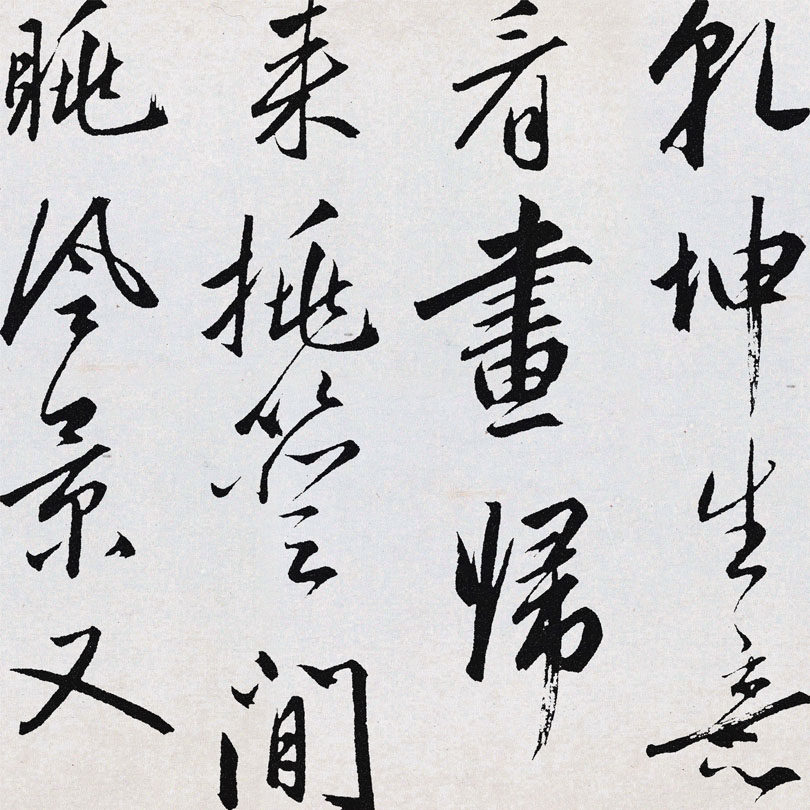 乾坤生意
看畫歸
來挑簦閒
眺風景又